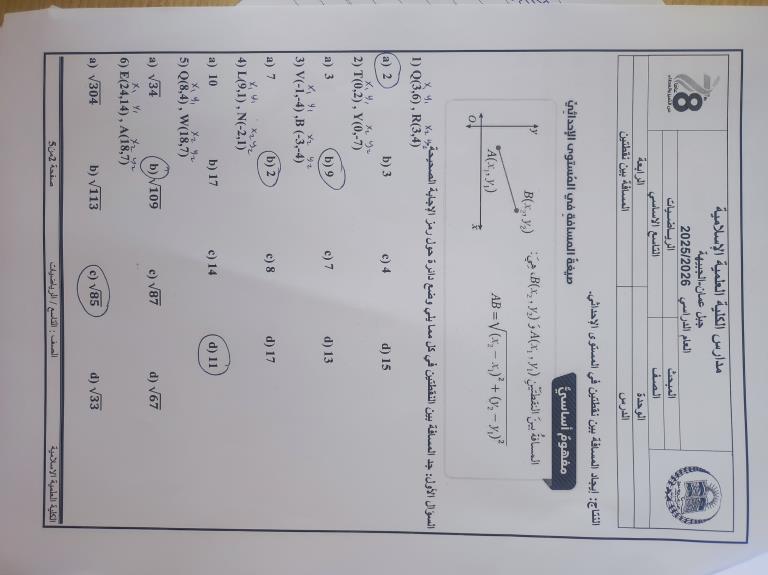 مدارس الكلية العلمية الإسلامية
جبل عمان-الجبيهة
العام الدراسي 2025/2026
المبحث الرياضيات
الصف التاسع الاساسي
الوحدة الرابعة
الدرس المسافة بين نقطتين
النتاج: إيجاد المسافة بين نقطتين في المستوى الإحداثي.
مفهوم أساسي
صيغة المسافة في المستوى الإحداثي
المسافة بين النقطتين A(x₁, y₁) و B(x₂, y₂)، هي:
AB = √(x₂ − x₁)² + (y₂ − y₁)²
y
B(x₂, y₂)
A(x₁, y₁)
O
x
السؤال الأول: جد المسافة بين النقطتين في كل مما يلي وضع دائرة حول رمز الإجابة الصحيحة
x₁ y₁ x₂ y₂
1) Q(3,6) , R(3,4)
a) 2 b) 3 c) 4 d) 15
x₁ y₁ x₂ y₂
2) T(0,2) , Y(0,-7)
a) 3 b) 9 c) 7 d) 13
x₁ y₁ x₂ y₂
3) V(-1,-4) ,B (-3,-4)
a) 7 b) 2 c) 8 d) 17
x₁ y₁ x₂ y₂
4) L(9,1) , N(-2,1)
a) 10 b) 17 c) 14 d) 11
x₁ y₁ x₂ y₂
5) Q(8,4) , W(18,7)
a) √34 b) √109 c) √87 d) √67
x₁ y₁ x₂ y₂
6) E(24,14) , A(18,7)
a) √304 b) √113 c) √85 d) √33
الكلية العلمية الاسلامية الصف : التاسع / الرياضيات صفحة 2من5